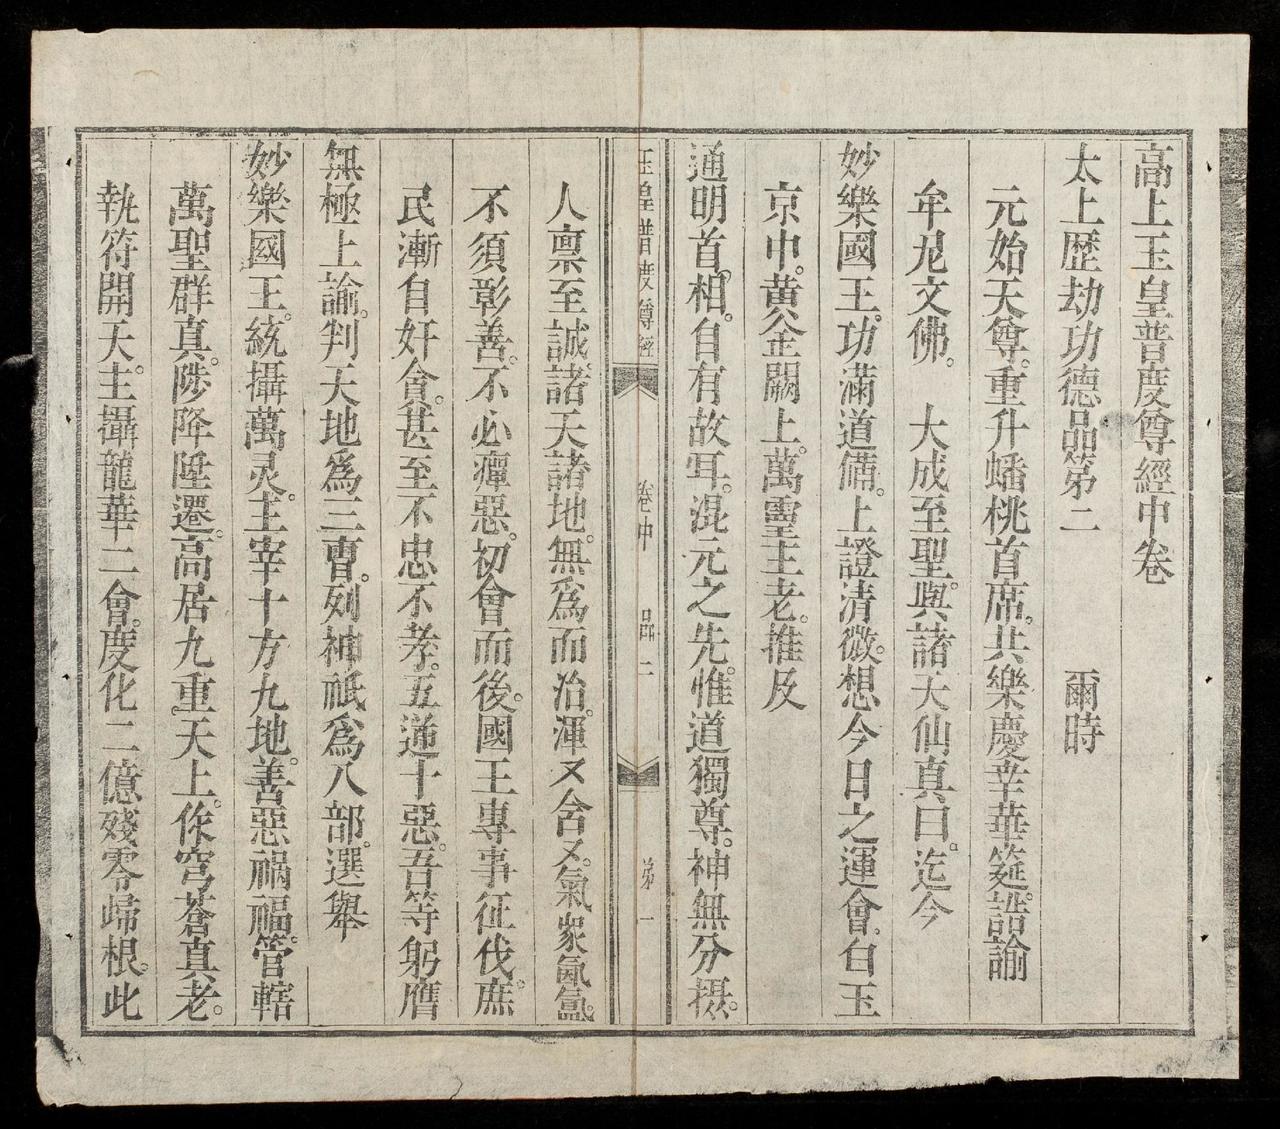 高上玉皇普度尊經中卷
太上歷劫功德品第二　爾時
元始天尊。重升蟠桃首席。共樂慶幸華筵。誥諭
牟尼文佛。　大成至聖。與諸天仙真曰。迄今
妙樂國王。功滿道備。上證清微。想今日之運會。白玉
京中。黃金闕上。萬靈主老。推及
通明首相。自有故耳。混元之先。惟道獨尊。神無分摄。
玉皇普度尊經　卷中　品二　第一
人禀至誠。諸天諸地。無爲而治。渾又含又。氣衆氤氲。
不須彰善。不必癉惡。初會而後。國王專事征伐。庶
民漸自奸貪。甚至不忠不孝。五逆十惡。吾等躬膺
無極上諭。判天地爲三曹。列神祇爲八部。選舉
妙樂國王。統攝萬灵。主宰十方九地。善惡禍福。管轄
萬聖群真。陟降陞遷。高居九重天上。侏穹蒼真老。
執符開天主。攝龍華二會。度化二億殘零歸根。此